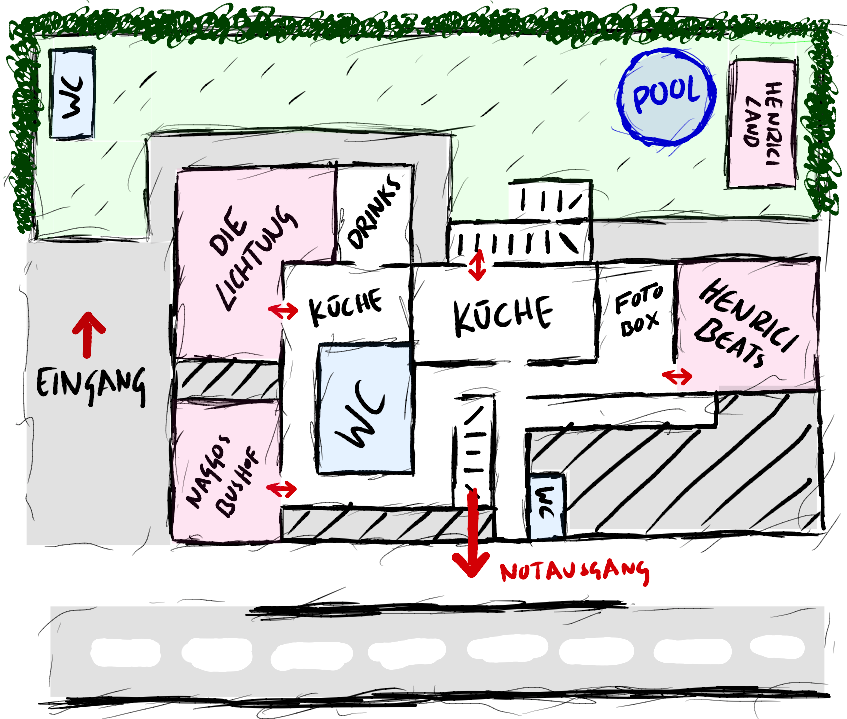 WC
POOL
HENRICI
LAND
DIE
LICHTUNG
DRINKS
KÜCHE
KÜCHE
FOTO
BOX
HENRICI
BEATS
EINGANG
WC
NAGGOS
BUSHOF
WC
NOTAUSGANG